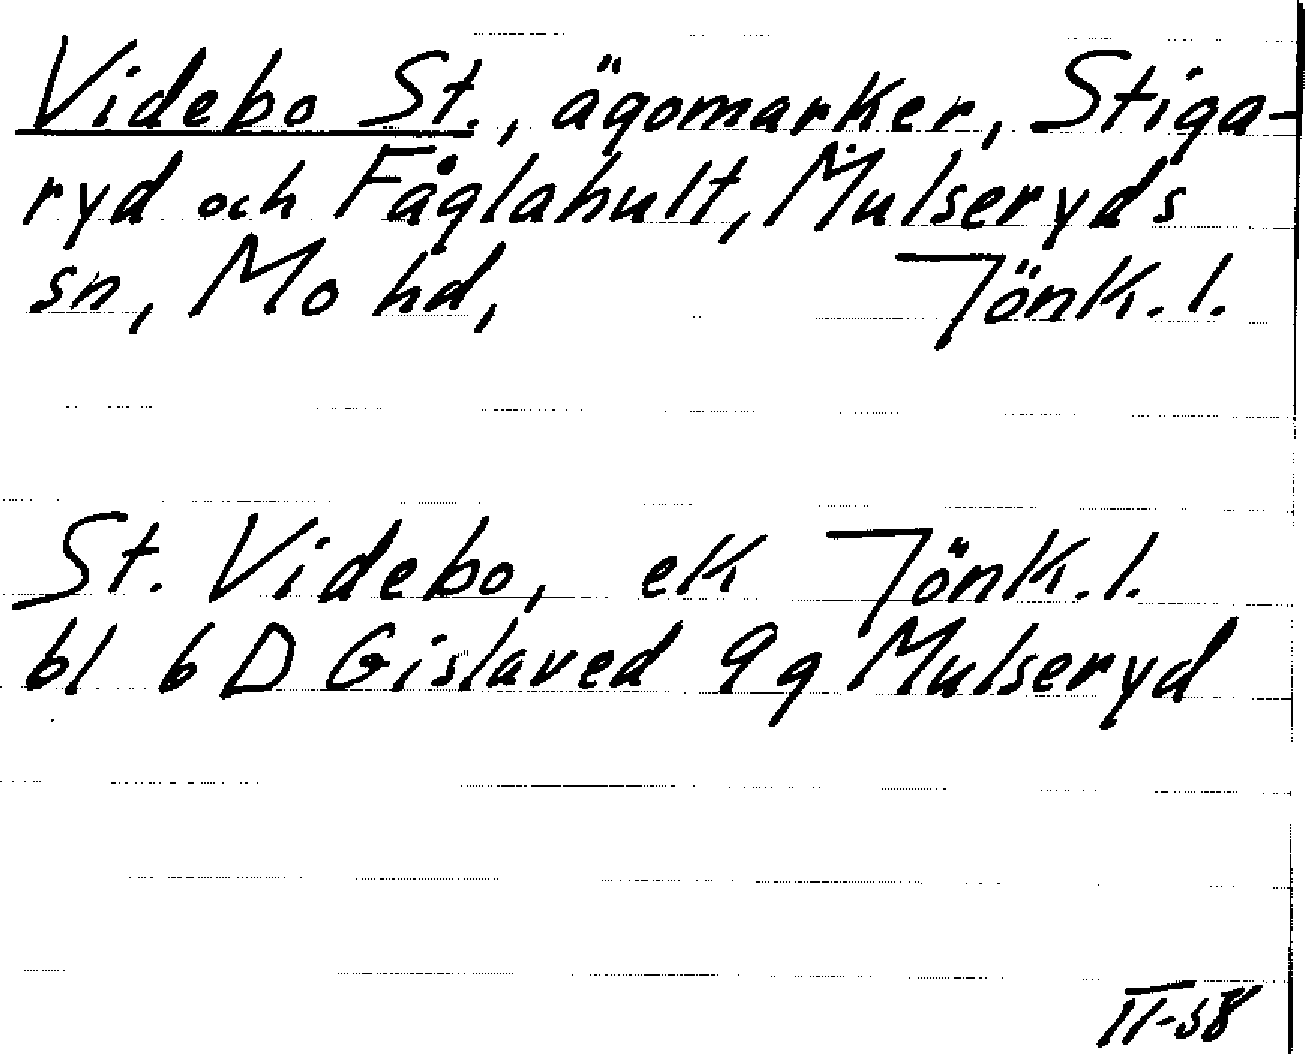 Videbo St., ägomarker, Stiga-
ryd och Fåglahult, Mulseryds
sn, Mo hd, Jönk. l.
St. Videbo, ek Jönk. l.
bl 6 D Gislaved 9g Mulseryd
II-58